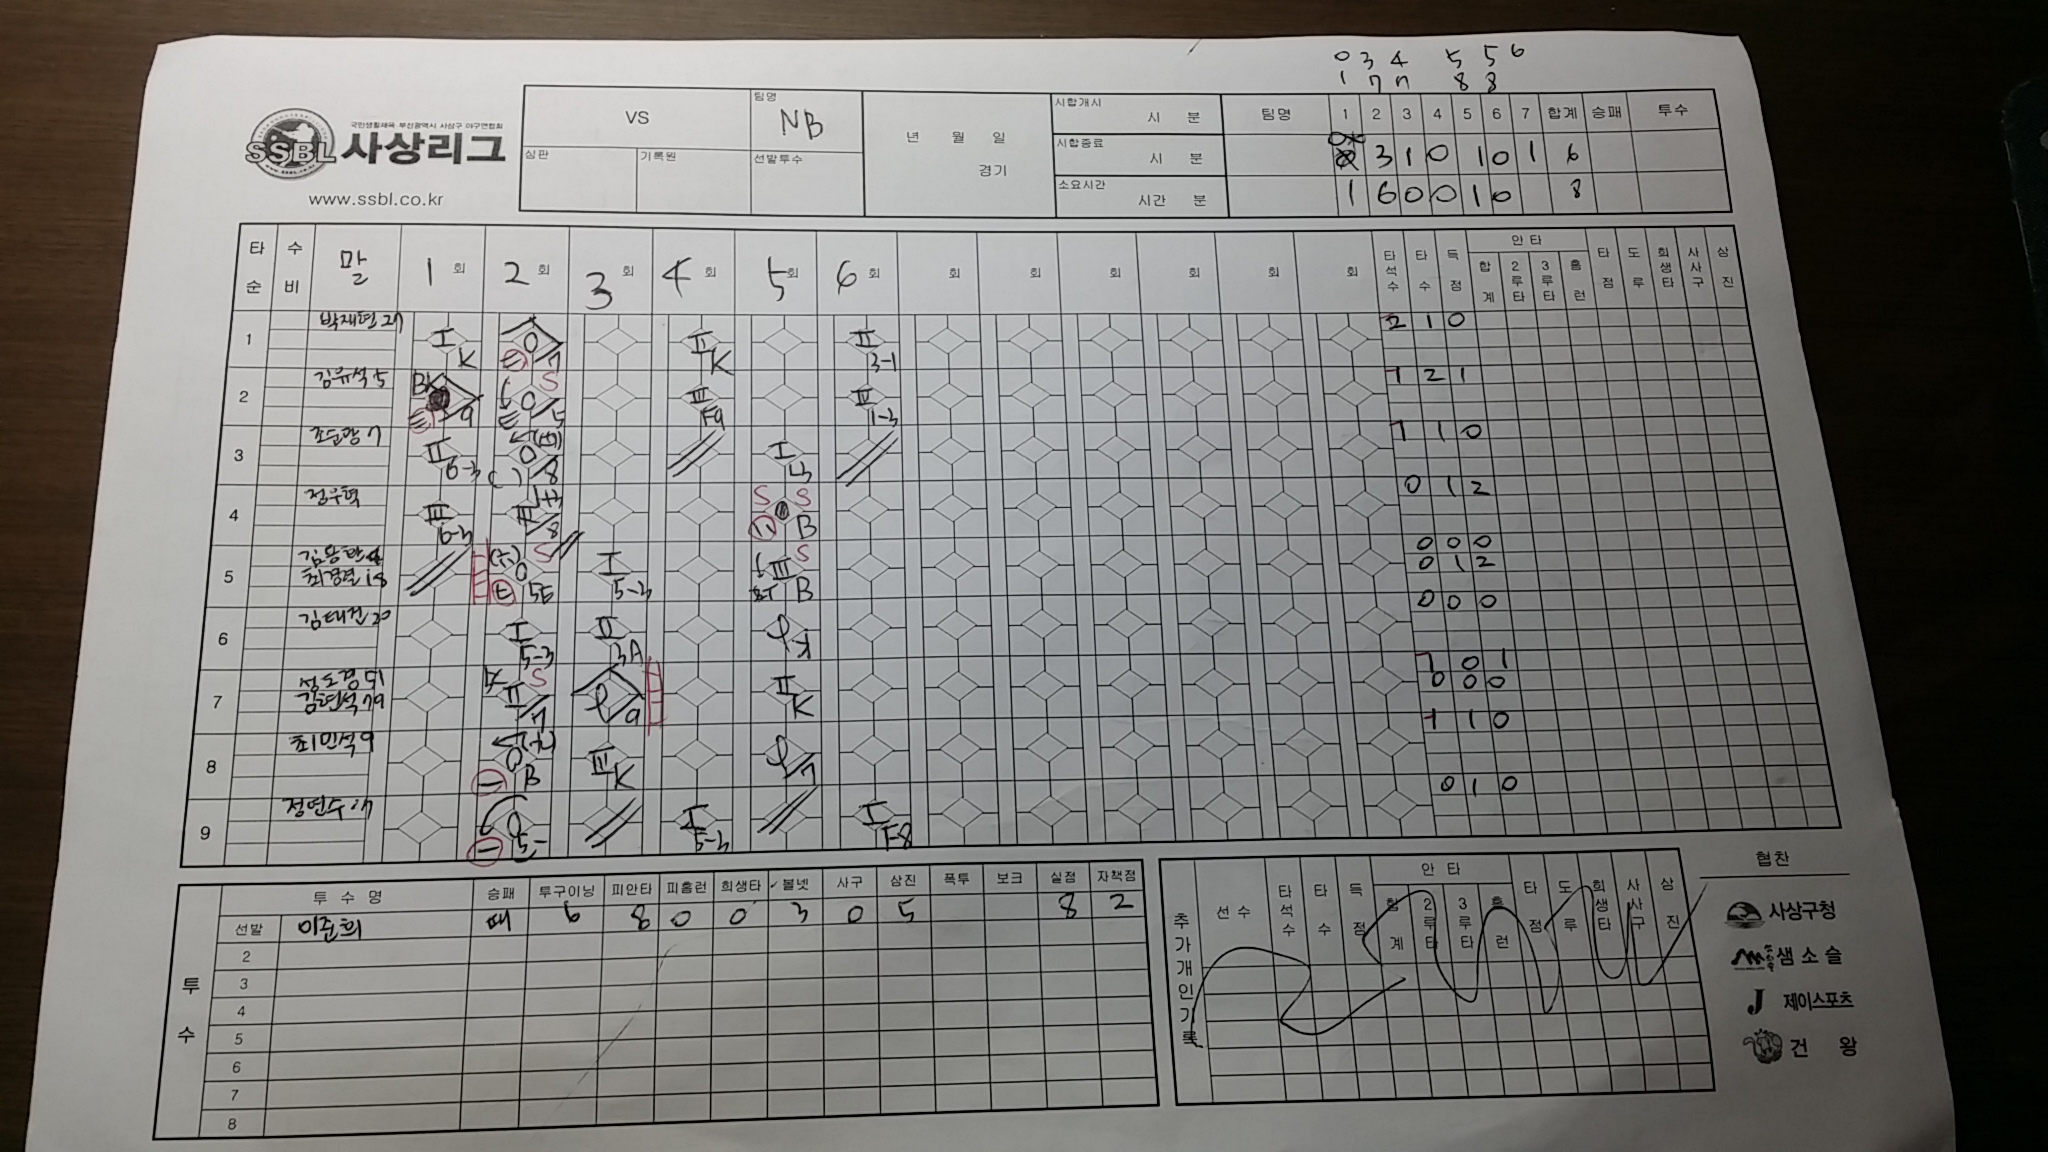 0 3 4 5 5 6
1 7 7 8 8
국민생활체육 부산광역시 사상구 야구연합회
SSBL 사상리그
www.ssbl.co.kr
VS
팀명
NB
심판
기록원
선발투수
년 월 일
경기
시합개시
시 분
시합종료
시 분
소요시간
시간 분
팀명 1 2 3 4 5 6 7 합계 승패 투수
3 1 0 1 0 1 6
1 6 0 0 1 0 8
타순 수비 말 1회 2회 3회 4회 5회 6회 회 회 회 회 회 회
타석수 타수 득점 안타 합계 2루타 3루타 홈런 타점 도루 희생타 사사구 삼진
1 박재현 27 I K 0 7 II K II 3-1 2 1 0
2 김유석 5 BK 9 S 0 5 III F9 III 1-3 1 2 1
3 7 II 6-3 0 8 I 1 1 0
4 정우혁 III 6-3 III 8 S S B 0 1 2
5 18 S 0 5E I 5-3 S III B 0 0 0
0 1 2
6 김태건 20 I 5-3 II 3A 0 0 0
7 51 S II 7 9 II K 1 0 1
김현석 79 0 0 0
8 최민석 9 0 B III K 7 1 1 0
9 정연수 17 0 5- I 5-3 I F8 0 1 0
투수
투수명 승패 투구이닝 피안타 피홈런 희생타 볼넷 사구 삼진 폭투 보크 실점 자책점
선발 이준희 패 6 8 0 0 3 0 5 8 2
2
3
4
5
6
7
8
추가개인기록
선수 타석수 타수 득점 안타 합계 2루타 3루타 홈런 타점 도루 희생타 사사구 삼진
협찬
사상구청
샘소슬
J 제이스포츠
건왕